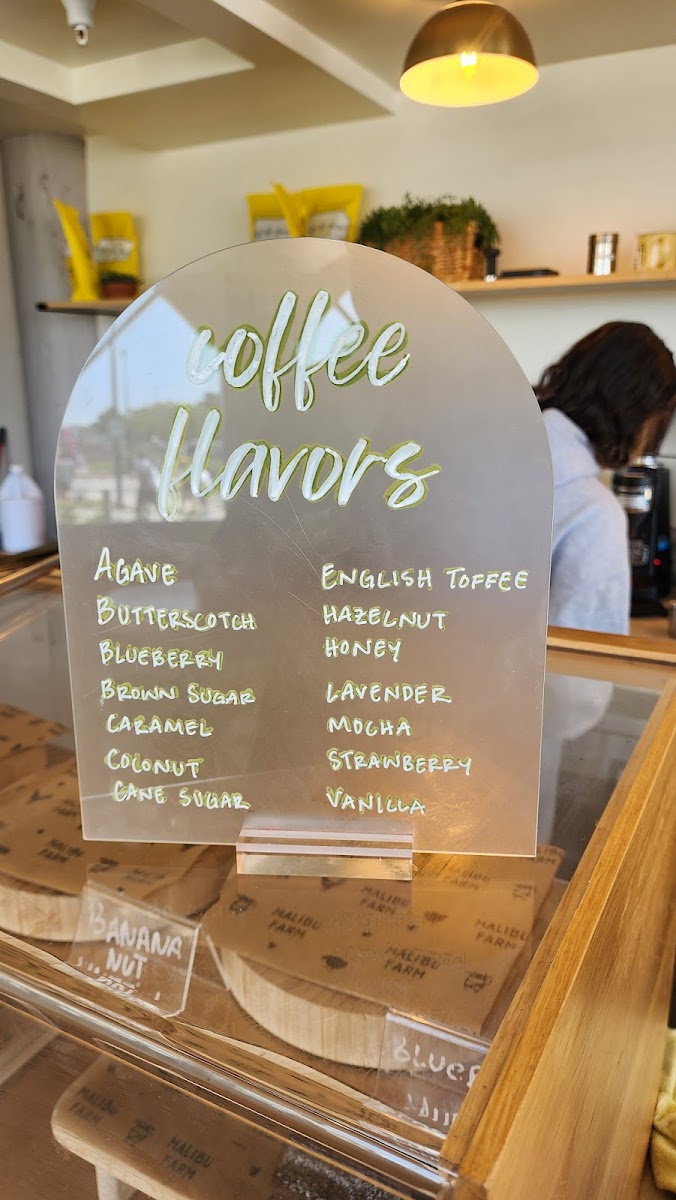 coffee
flavors
AGAVE
BUTTERSCOTCH
BLUEBERRY
BROWN SUGAR
CARAMEL
COCONUT
CANE SUGAR
ENGLISH TOFFEE
HAZELNUT
HONEY
LAVENDER
MOCHA
STRAWBERRY
VANILLA
BANANA
NUT
MALIBU
FARM
MALIBU
FARM
MALIBU
FARM
MALIBU
FARM
MALIBU
FARM
MALIBU
FARM
MALIBU
FARM